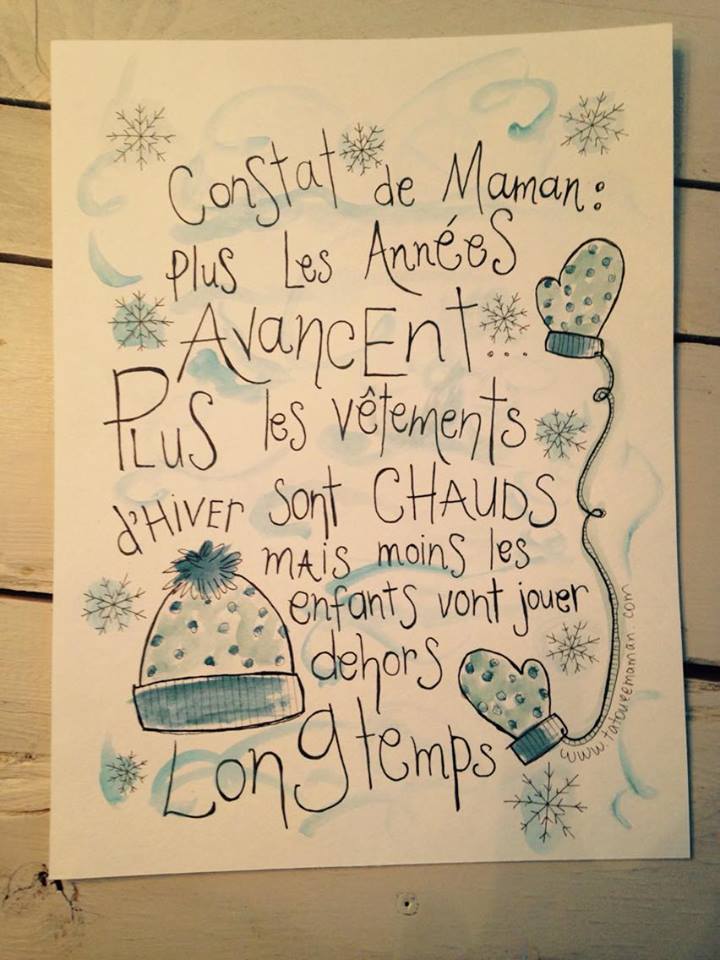 Constat de Maman :
Plus Les Années
AvancEnt...
PLuS les vêtements
d'HiVER sont CHAUDS
mais moins les
enfants vont jouer
dehors
Longtemps
www.tatoueemaman.com